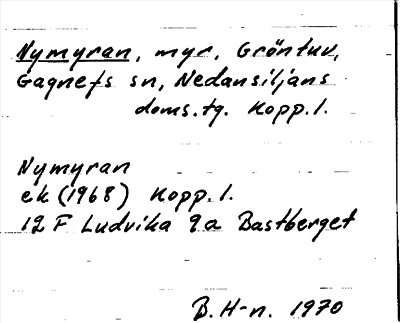 Nymyran, myr, Gröntuv,
Gagnefs sn, Nedansiljans
doms.tg. Kopp.l.
Nymyran
ek (1968) Kopp.l.
12 F Ludvika 9a Bastberget
B.H-n. 1970